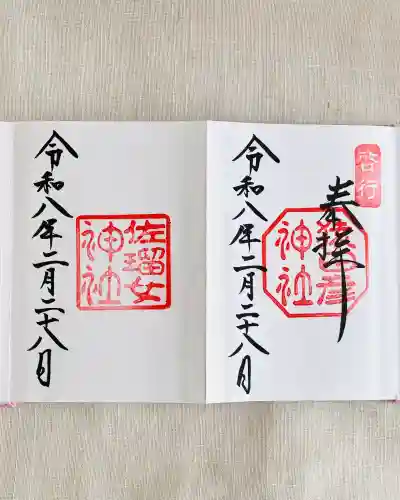 啓行
奉拝
猿田彦
神社
令和八年二月二十八日
佐瑠女
神社
令和八年二月二十八日